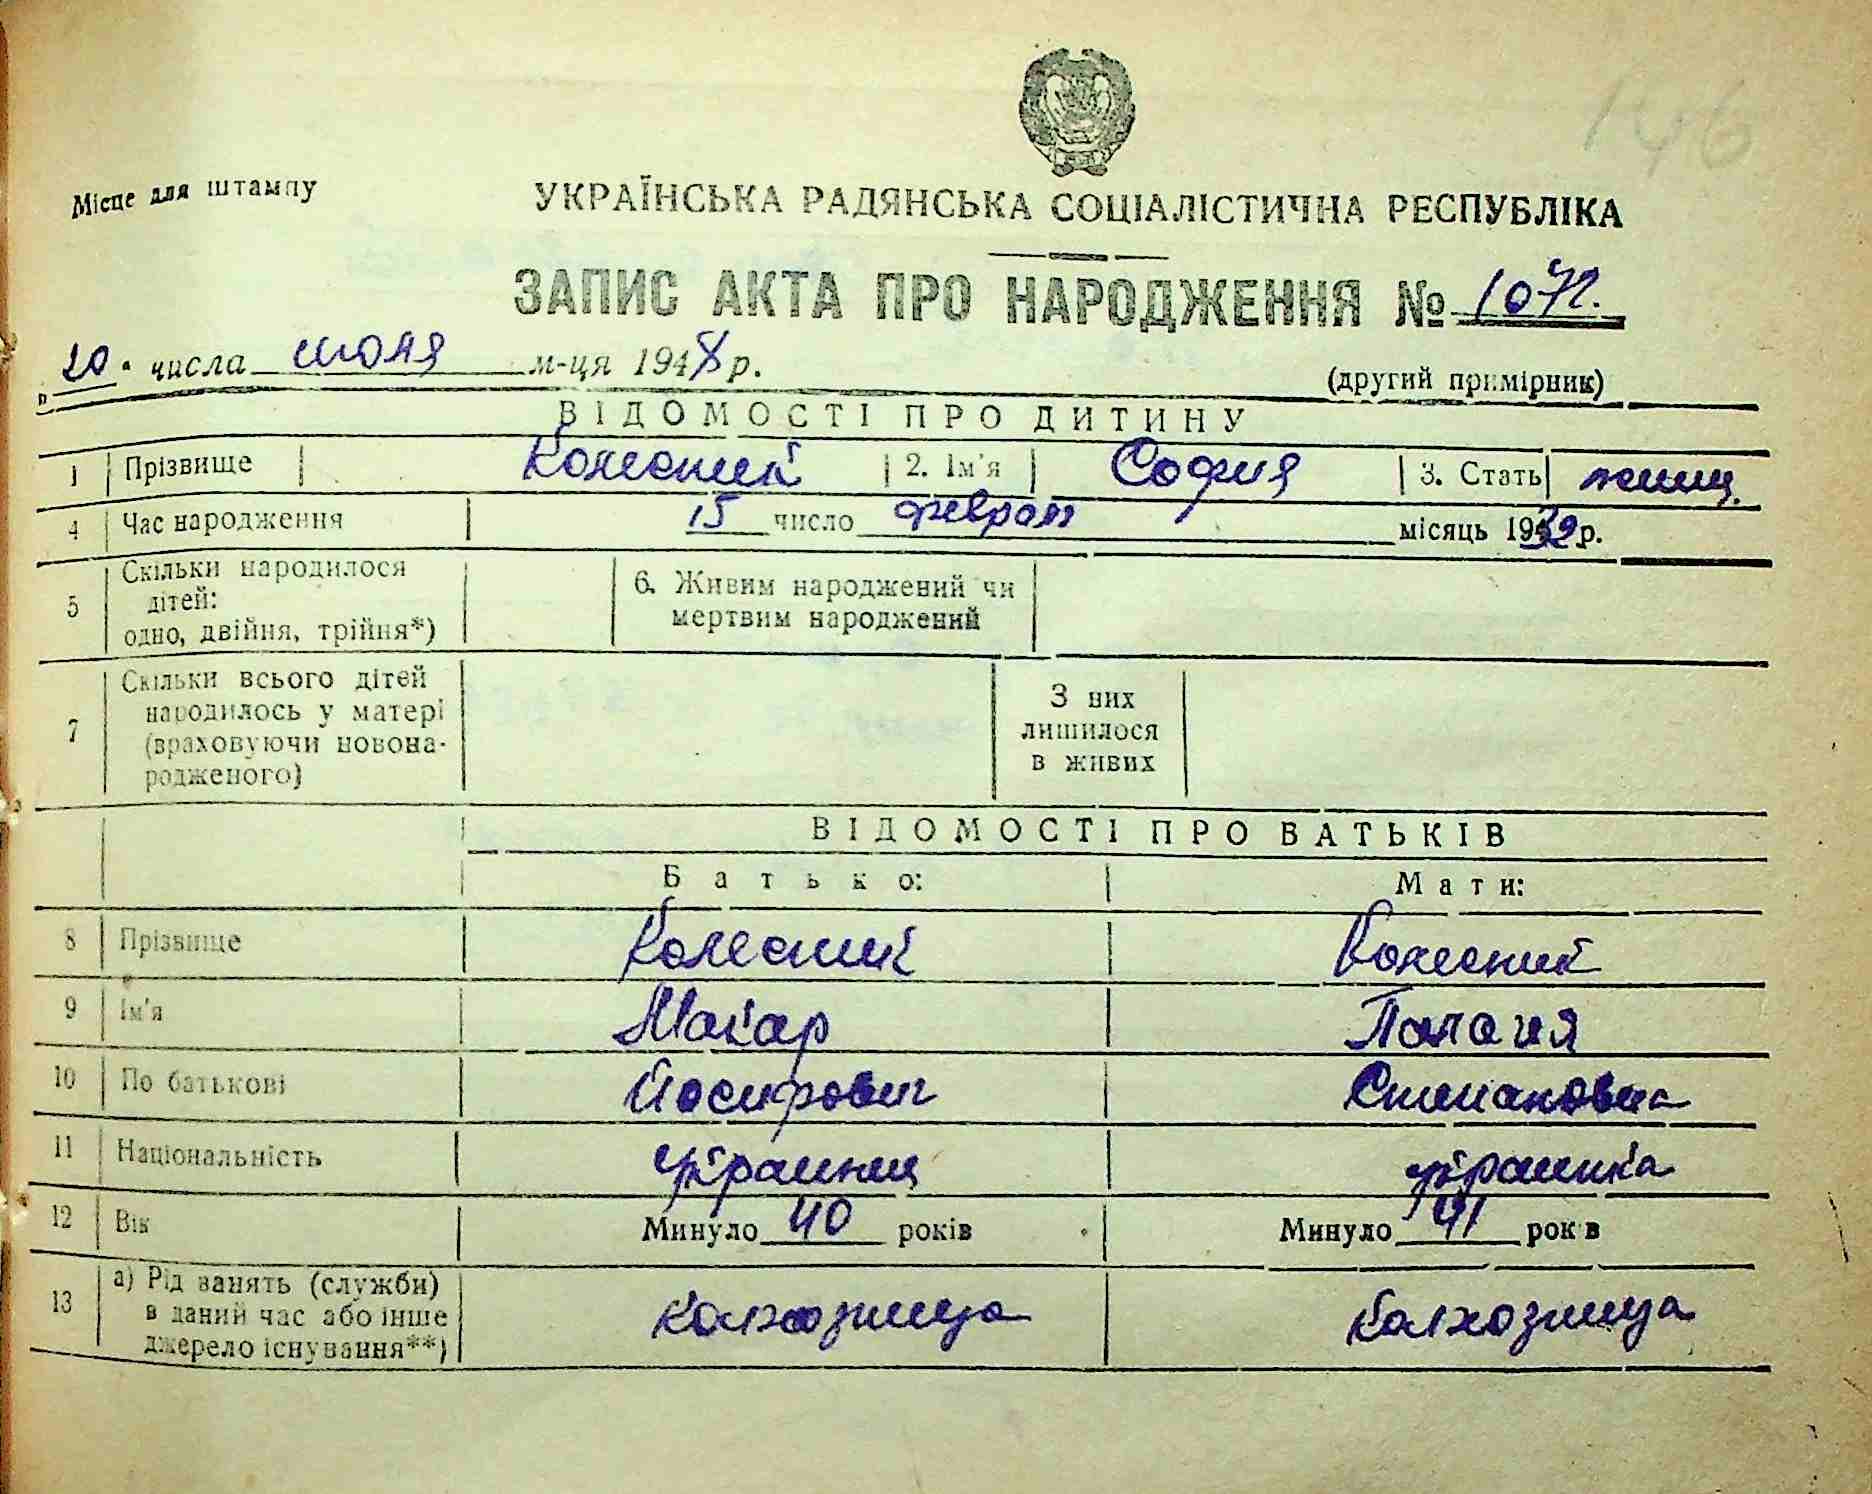 146
Місце для штампу
УКРАЇНСЬКА РАДЯНСЬКА СОЦІАЛІСТИЧНА РЕСПУБЛІКА
ЗАПИС АКТА ПРО НАРОДЖЕННЯ № 1072.
20 числа июля м-ця 1948 р.
(другий примірник)
ВІДОМОСТІ ПРО ДИТИНУ
1 Прізвище Колесник 2. Ім'я София 3. Стать женщ.
4 Час народження 15 число феврал місяць 1939 р.
5 Скільки народилося дітей: одно, двійня, трійня*) 6. Живим народжений чи мертвим народжений
7 Скільки всього дітей народилось у матері (враховуючи новонародженого) З них лишилося в живих
ВІДОМОСТІ ПРО БАТЬКІВ
Батько: Мати:
8 Прізвище Колесник Колесник
9 Ім'я Макар Палагия
10 По батькові Йосифович Степановна
11 Національність украинец украинка
12 Вік Минуло 40 років Минуло 41 рок в
13 а) Рід занять (служби) в даний час або інше джерело існування**) колхозница колхозница